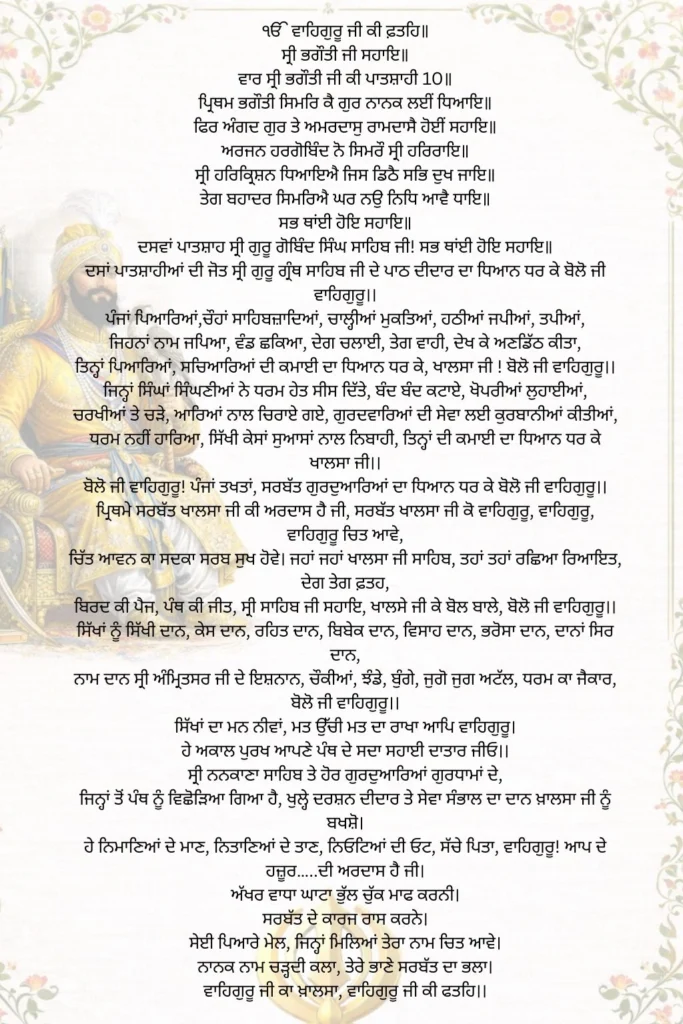 ੴ ਵਾਹਿਗੁਰੂ ਜੀ ਕੀ ਫ਼ਤਹਿ॥
ਸ੍ਰੀ ਭਗੌਤੀ ਜੀ ਸਹਾਇ॥
ਵਾਰ ਸ੍ਰੀ ਭਗੌਤੀ ਜੀ ਕੀ ਪਾਤਸ਼ਾਹੀ 10॥
ਪ੍ਰਿਥਮ ਭਗੌਤੀ ਸਿਮਰਿ ਕੈ ਗੁਰ ਨਾਨਕ ਲਈਂ ਧਿਆਇ॥
ਫਿਰ ਅੰਗਦ ਗੁਰ ਤੇ ਅਮਰਦਾਸੁ ਰਾਮਦਾਸੈ ਹੋਈਂ ਸਹਾਇ॥
ਅਰਜਨ ਹਰਗੋਬਿੰਦ ਨੋ ਸਿਮਰੌ ਸ੍ਰੀ ਹਰਿਰਾਇ॥
ਸ੍ਰੀ ਹਰਿਕ੍ਰਿਸ਼ਨ ਧਿਆਇਐ ਜਿਸ ਡਿਠੈ ਸਭਿ ਦੁਖ ਜਾਇ॥
ਤੇਗ ਬਹਾਦਰ ਸਿਮਰਿਐ ਘਰ ਨਉ ਨਿਧਿ ਆਵੈ ਧਾਇ॥
ਸਭ ਥਾਂਈ ਹੋਇ ਸਹਾਇ॥
ਦਸਵਾਂ ਪਾਤਸ਼ਾਹ ਸ੍ਰੀ ਗੁਰੂ ਗੋਬਿੰਦ ਸਿੰਘ ਸਾਹਿਬ ਜੀ! ਸਭ ਥਾਂਈ ਹੋਇ ਸਹਾਇ॥
ਦਸਾਂ ਪਾਤਸ਼ਾਹੀਆਂ ਦੀ ਜੋਤ ਸ੍ਰੀ ਗੁਰੂ ਗ੍ਰੰਥ ਸਾਹਿਬ ਜੀ ਦੇ ਪਾਠ ਦੀਦਾਰ ਦਾ ਧਿਆਨ ਧਰ ਕੇ ਬੋਲੋ ਜੀ
ਵਾਹਿਗੁਰੂ।।
ਪੰਜਾਂ ਪਿਆਰਿਆਂ,ਚੌਹਾਂ ਸਾਹਿਬਜ਼ਾਦਿਆਂ, ਚਾਲ੍ਹੀਆਂ ਮੁਕਤਿਆਂ, ਹਠੀਆਂ ਜਪੀਆਂ, ਤਪੀਆਂ,
ਜਿਹਨਾਂ ਨਾਮ ਜਪਿਆ, ਵੰਡ ਛਕਿਆ, ਦੇਗ ਚਲਾਈ, ਤੇਗ ਵਾਹੀ, ਦੇਖ ਕੇ ਅਣਡਿੱਠ ਕੀਤਾ,
ਤਿਨ੍ਹਾਂ ਪਿਆਰਿਆਂ, ਸਚਿਆਰਿਆਂ ਦੀ ਕਮਾਈ ਦਾ ਧਿਆਨ ਧਰ ਕੇ, ਖਾਲਸਾ ਜੀ ! ਬੋਲੋ ਜੀ ਵਾਹਿਗੁਰੂ।।
ਜਿਨ੍ਹਾਂ ਸਿੰਘਾਂ ਸਿੰਘਣੀਆਂ ਨੇ ਧਰਮ ਹੇਤ ਸੀਸ ਦਿੱਤੇ, ਬੰਦ ਬੰਦ ਕਟਾਏ, ਖੋਪਰੀਆਂ ਲੁਹਾਈਆਂ,
ਚਰਖੀਆਂ ਤੇ ਚੜੇ, ਆਰਿਆਂ ਨਾਲ ਚਿਰਾਏ ਗਏ, ਗੁਰਦਵਾਰਿਆਂ ਦੀ ਸੇਵਾ ਲਈ ਕੁਰਬਾਨੀਆਂ ਕੀਤੀਆਂ,
ਧਰਮ ਨਹੀਂ ਹਾਰਿਆ, ਸਿੱਖੀ ਕੇਸਾਂ ਸੁਆਸਾਂ ਨਾਲ ਨਿਬਾਹੀ, ਤਿਨ੍ਹਾਂ ਦੀ ਕਮਾਈ ਦਾ ਧਿਆਨ ਧਰ ਕੇ
ਖਾਲਸਾ ਜੀ।।
ਬੋਲੋ ਜੀ ਵਾਹਿਗੁਰੂ! ਪੰਜਾਂ ਤਖਤਾਂ, ਸਰਬੱਤ ਗੁਰਦੁਆਰਿਆਂ ਦਾ ਧਿਆਨ ਧਰ ਕੇ ਬੋਲੋ ਜੀ ਵਾਹਿਗੁਰੂ।।
ਪ੍ਰਿਥਮੇ ਸਰਬੱਤ ਖਾਲਸਾ ਜੀ ਕੀ ਅਰਦਾਸ ਹੈ ਜੀ, ਸਰਬੱਤ ਖਾਲਸਾ ਜੀ ਕੋ ਵਾਹਿਗੁਰੂ, ਵਾਹਿਗੁਰੂ,
ਵਾਹਿਗੁਰੂ ਚਿਤ ਆਵੇ,
ਚਿੱਤ ਆਵਨ ਕਾ ਸਦਕਾ ਸਰਬ ਸੁਖ ਹੋਵੇ। ਜਹਾਂ ਜਹਾਂ ਖਾਲਸਾ ਜੀ ਸਾਹਿਬ, ਤਹਾਂ ਤਹਾਂ ਰਛਿਆ ਰਿਆਇਤ,
ਦੇਗ ਤੇਗ ਫ਼ਤਹ,
ਬਿਰਦ ਕੀ ਪੈਜ, ਪੰਥ ਕੀ ਜੀਤ, ਸ੍ਰੀ ਸਾਹਿਬ ਜੀ ਸਹਾਇ, ਖਾਲਸੇ ਜੀ ਕੇ ਬੋਲ ਬਾਲੇ, ਬੋਲੋ ਜੀ ਵਾਹਿਗੁਰੂ।।
ਸਿੱਖਾਂ ਨੂੰ ਸਿੱਖੀ ਦਾਨ, ਕੇਸ ਦਾਨ, ਰਹਿਤ ਦਾਨ, ਬਿਬੇਕ ਦਾਨ, ਵਿਸਾਹ ਦਾਨ, ਭਰੋਸਾ ਦਾਨ, ਦਾਨਾਂ ਸਿਰ
ਦਾਨ,
ਨਾਮ ਦਾਨ ਸ੍ਰੀ ਅੰਮ੍ਰਿਤਸਰ ਜੀ ਦੇ ਇਸ਼ਨਾਨ, ਚੌਕੀਆਂ, ਝੰਡੇ, ਬੁੰਗੇ, ਜੁਗੋ ਜੁਗ ਅਟੱਲ, ਧਰਮ ਕਾ ਜੈਕਾਰ,
ਬੋਲੋ ਜੀ ਵਾਹਿਗੁਰੂ।।
ਸਿੱਖਾਂ ਦਾ ਮਨ ਨੀਵਾਂ, ਮਤ ਉੱਚੀ ਮਤ ਦਾ ਰਾਖਾ ਆਪਿ ਵਾਹਿਗੁਰੂ।
ਹੇ ਅਕਾਲ ਪੁਰਖ ਆਪਣੇ ਪੰਥ ਦੇ ਸਦਾ ਸਹਾਈ ਦਾਤਾਰ ਜੀਓ।।
ਸ੍ਰੀ ਨਨਕਾਣਾ ਸਾਹਿਬ ਤੇ ਹੋਰ ਗੁਰਦੁਆਰਿਆਂ ਗੁਰਧਾਮਾਂ ਦੇ,
ਜਿਨ੍ਹਾਂ ਤੋਂ ਪੰਥ ਨੂੰ ਵਿਛੋੜਿਆ ਗਿਆ ਹੈ, ਖੁਲ੍ਹੇ ਦਰਸ਼ਨ ਦੀਦਾਰ ਤੇ ਸੇਵਾ ਸੰਭਾਲ ਦਾ ਦਾਨ ਖ਼ਾਲਸਾ ਜੀ ਨੂੰ
ਬਖਸ਼ੋ।
ਹੇ ਨਿਮਾਣਿਆਂ ਦੇ ਮਾਣ, ਨਿਤਾਣਿਆਂ ਦੇ ਤਾਣ, ਨਿਓਟਿਆਂ ਦੀ ਓਟ, ਸੱਚੇ ਪਿਤਾ, ਵਾਹਿਗੁਰੂ! ਆਪ ਦੇ
ਹਜ਼ੂਰ.....ਦੀ ਅਰਦਾਸ ਹੈ ਜੀ।
ਅੱਖਰ ਵਾਧਾ ਘਾਟਾ ਭੁੱਲ ਚੁੱਕ ਮਾਫ ਕਰਨੀ।
ਸਰਬੱਤ ਦੇ ਕਾਰਜ ਰਾਸ ਕਰਨੇ।
ਸੇਈ ਪਿਆਰੇ ਮੇਲ, ਜਿਨ੍ਹਾਂ ਮਿਲਿਆਂ ਤੇਰਾ ਨਾਮ ਚਿਤ ਆਵੇ।
ਨਾਨਕ ਨਾਮ ਚੜ੍ਹਦੀ ਕਲਾ, ਤੇਰੇ ਭਾਣੇ ਸਰਬੱਤ ਦਾ ਭਲਾ।
ਵਾਹਿਗੁਰੂ ਜੀ ਕਾ ਖ਼ਾਲਸਾ, ਵਾਹਿਗੁਰੂ ਜੀ ਕੀ ਫਤਹਿ।।